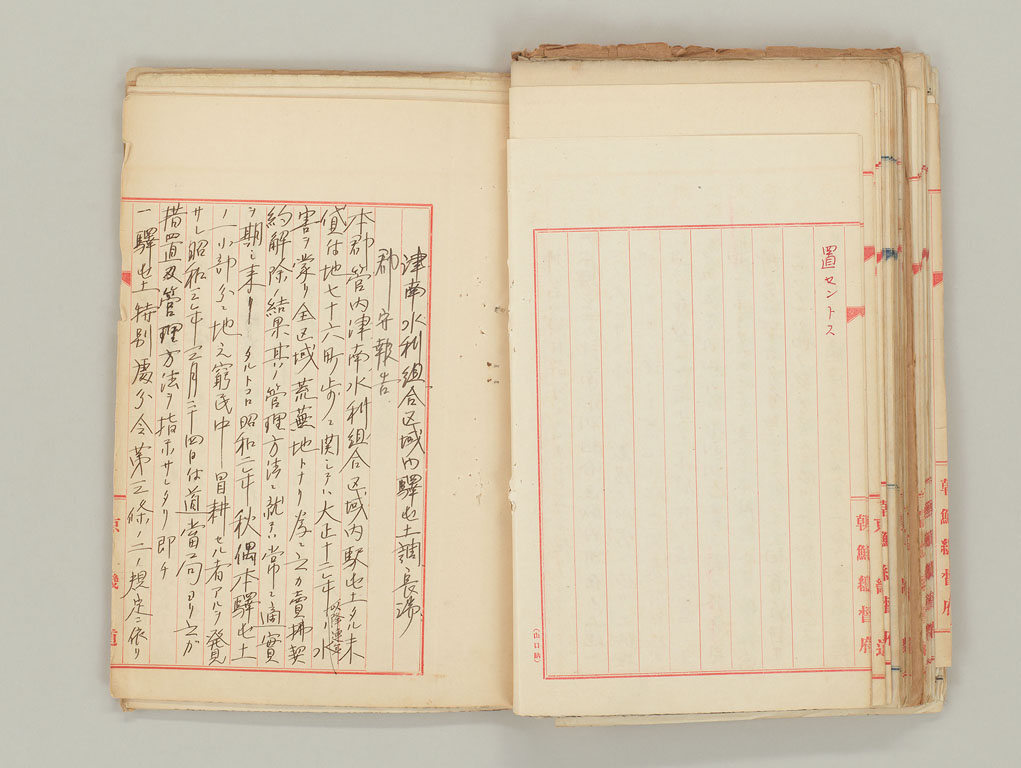 置セントス
朝鮮總督府
津南水利組合区域内驛屯土調
郡守報告
本郡管内津南水利組合区域内駅屯土タル未
貸付地七十六町歩ニ関シテハ大正十二年以降連年ノ水
害ヲ蒙リ全区域荒蕪地トナリ賣拂契
約解除結果其ノ管理方法ニ就テハ常ニ適實
ヲ期シ来リシタルトコロ昭和二年秋偶本驛屯土
ノ一小部分ニ地元窮民中冒耕セル者アルヲ發見
サレ昭和三年三月二十四日付道當局ヨリ之ガ
措置及管理方法ヲ指示サレタリ即チ
一驛屯土特別處分令第三條ノ二ノ規定ニ依リ
京畿道